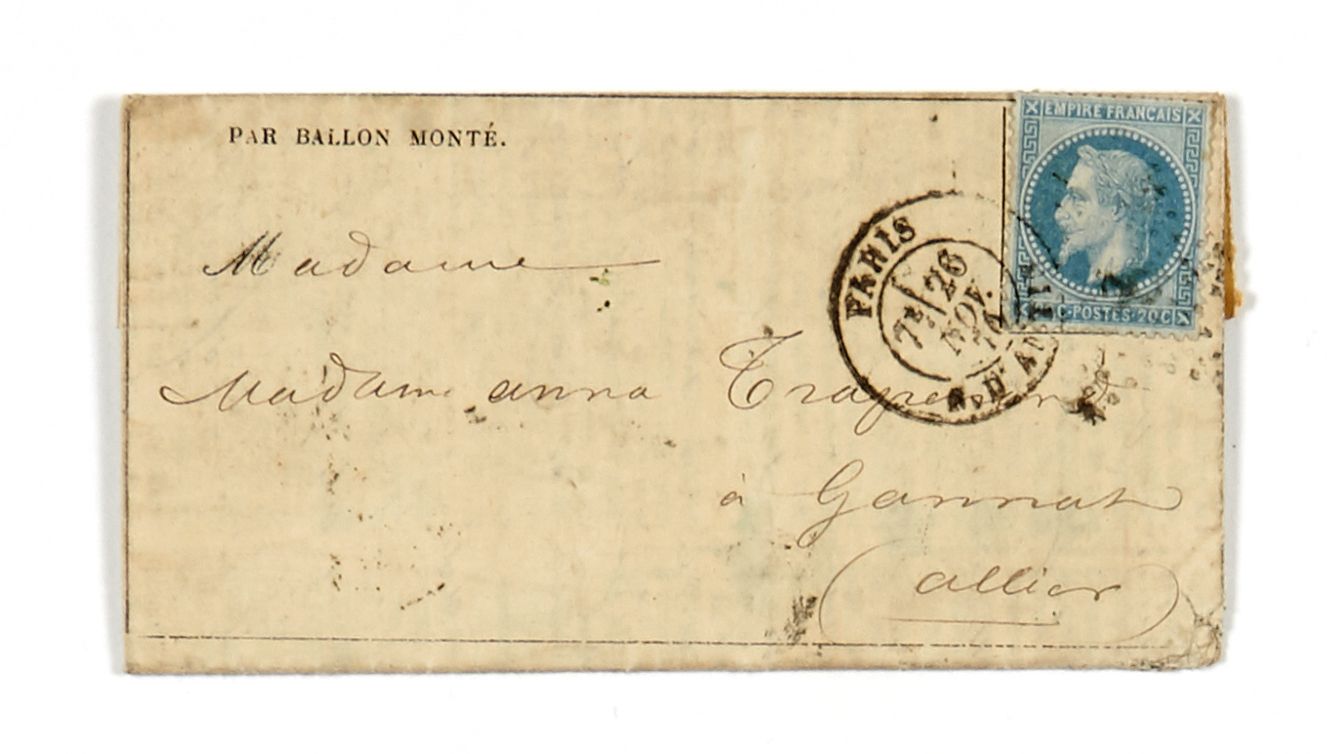 PAR BALLON MONTÉ.
EMPIRE FRANÇAIS
C·POSTES·20C
PARIS
7E 26
NOV.
70
R. D'ANTIN
Madame
Madame anna
à Gannat
(allier)